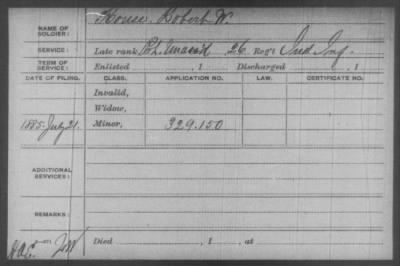 NAME OF SOLDIER: House, Robert W.
SERVICE: Late rank, Pvt. 26 Reg't Ind Inf.
TERM OF SERVICE: Enlisted , 1 Discharged , 1
DATE OF FILING. CLASS. APPLICATION NO. LAW. CERTIFICATE NO.
Invalid,
Widow,
1885 July 21. Minor, 329.150
ADDITIONAL SERVICES:
REMARKS:
Died , 1 , at